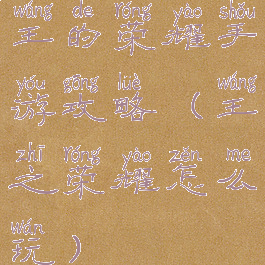 wáng de róng yào shǒu
王的荣耀手
yóu gōng lüè wáng
游攻略（王
zhī róng yào zěn me
之荣耀怎么
wán
玩）